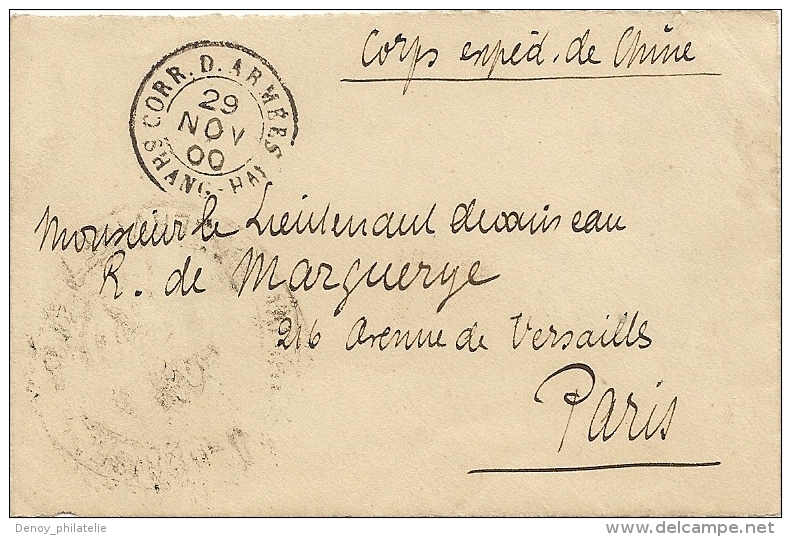 Corps expéd. de Chine
CORR. D. ARMÉES
29
NOV
00
SHANG-HAI
Monsieur le Lieutenant de vaisseau
R. de Marguerye
216 Avenue de Versailles
Paris
Denoy_philatelie
www.delcampe.net